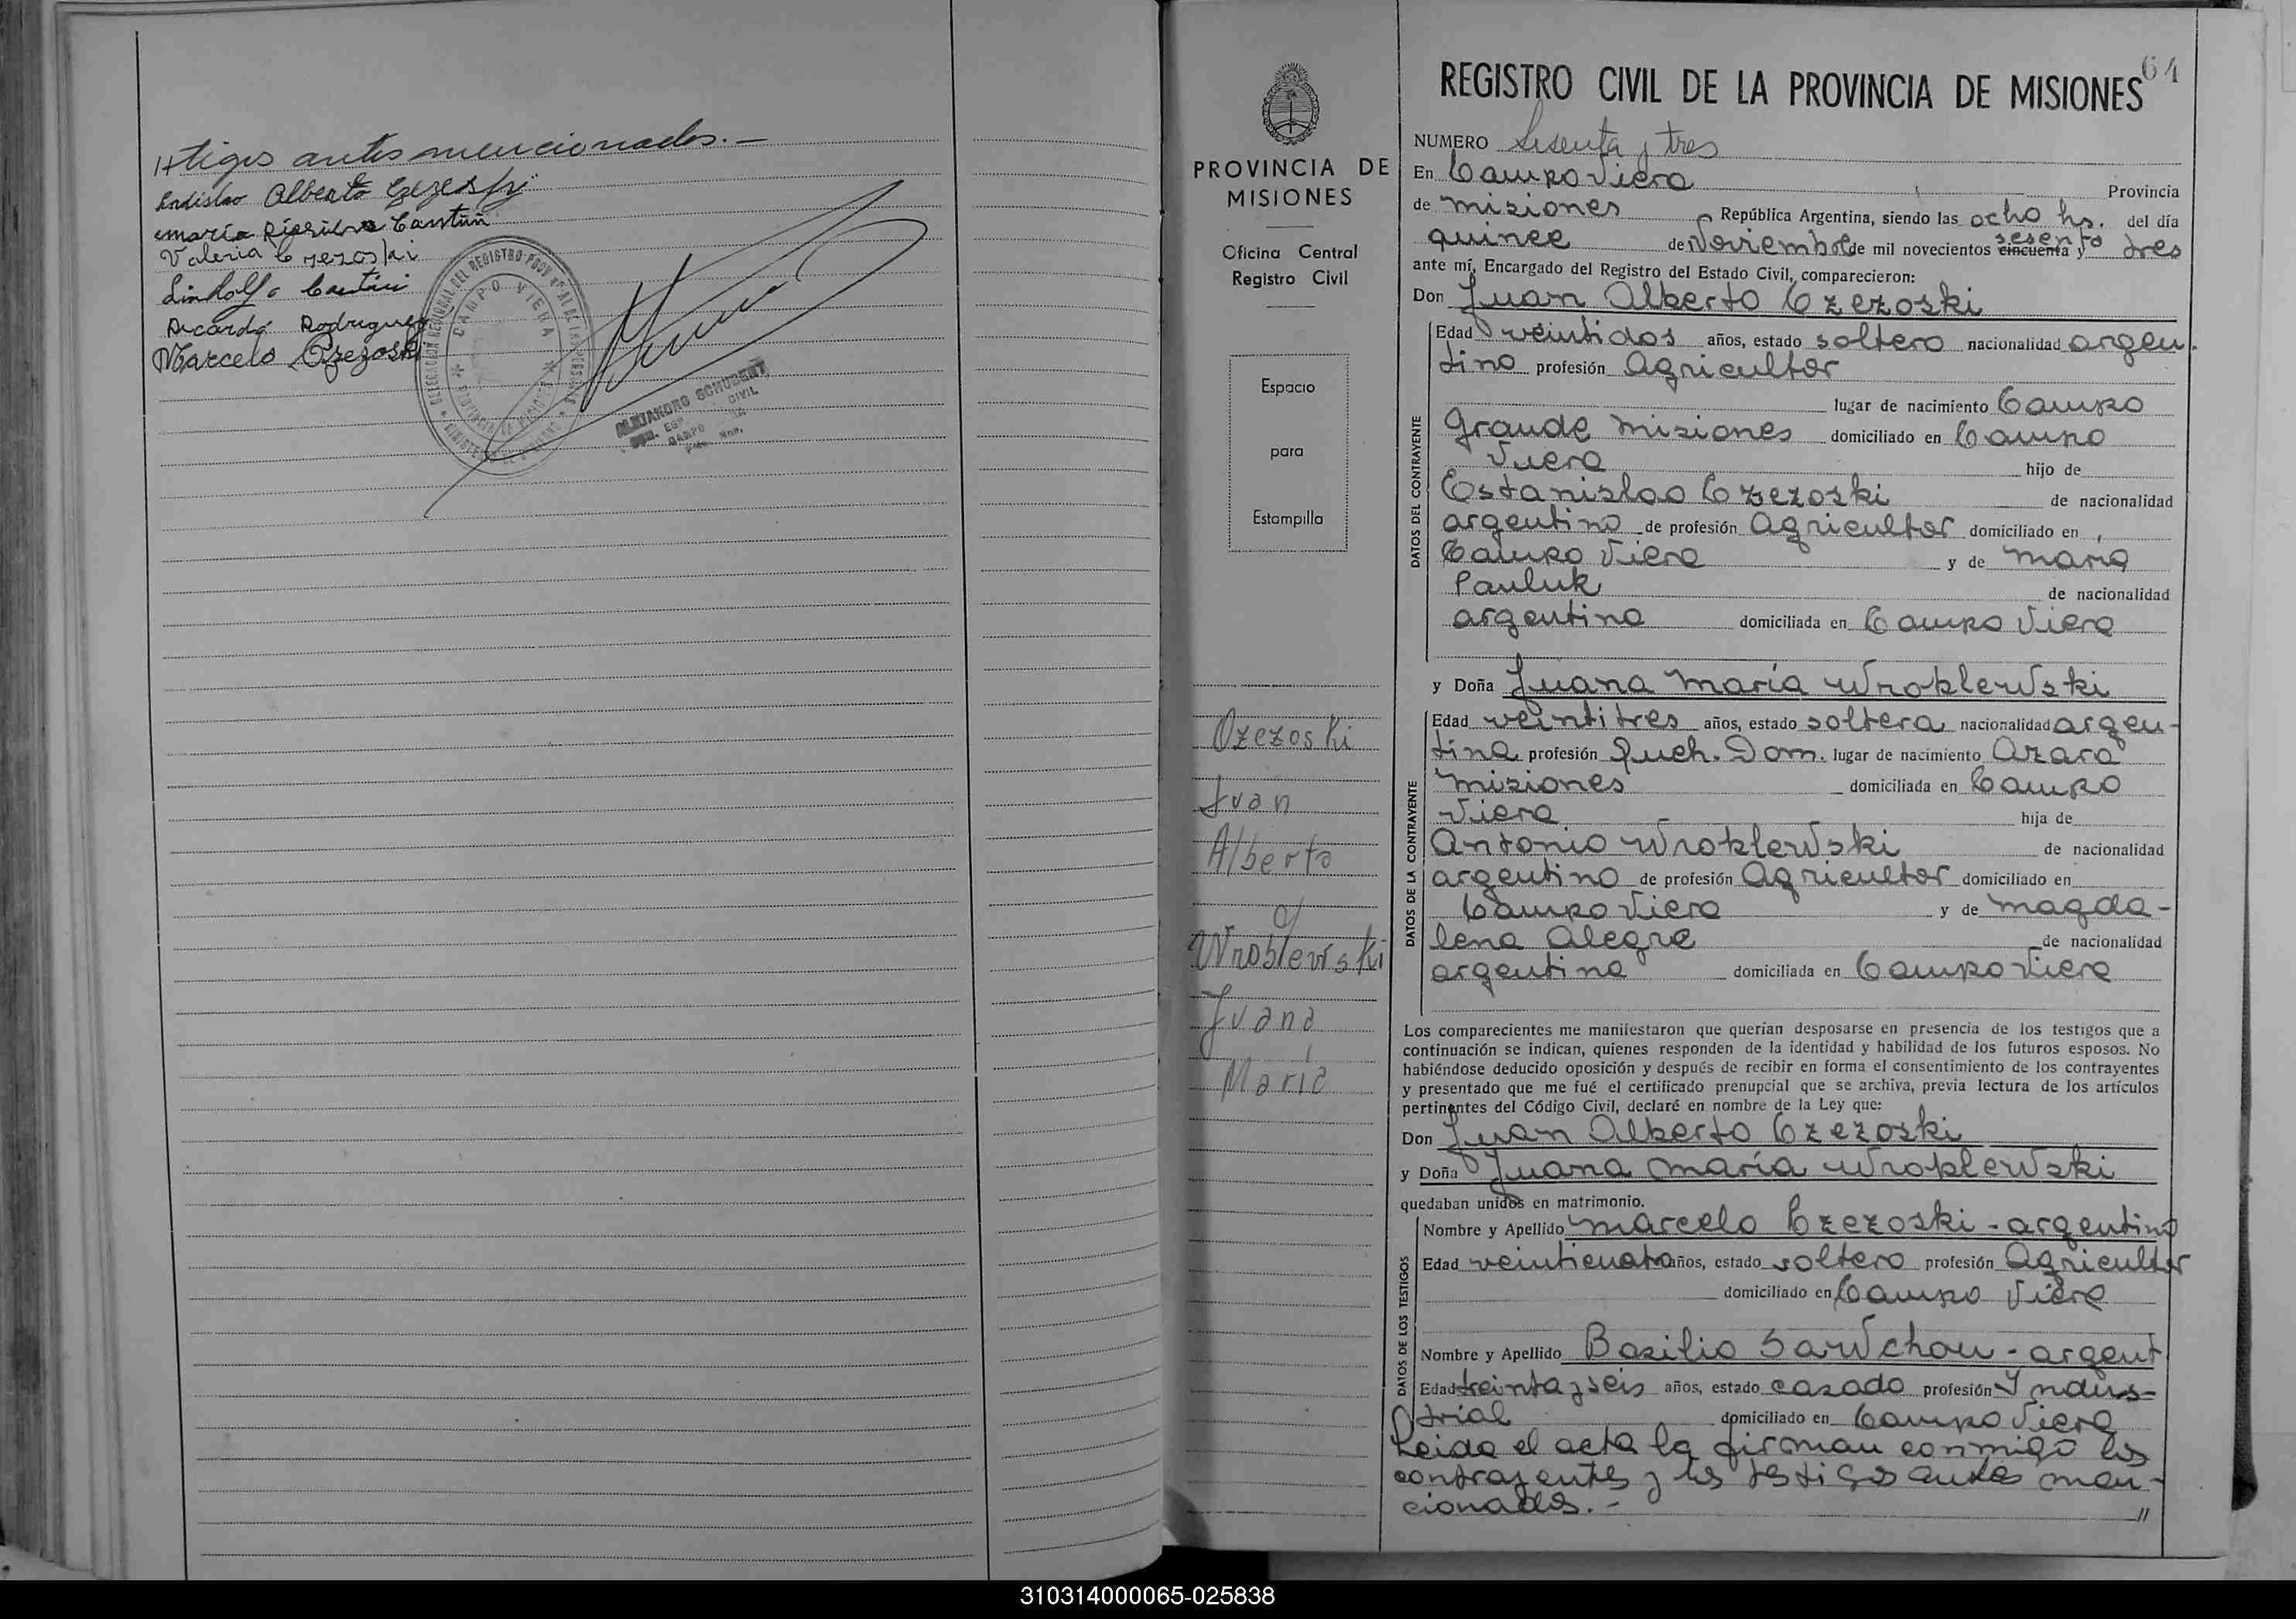 //tigos antes mencionados.—
Ladislao Alberto Czezoski
María
Valeria Czezoski
Lindolfo
Ricardo Rodriguez
Marcelo Czezoski
CAMPO VIERA
ALEJANDRO SCHUBERT
CIVIL
CAMPO
PROVINCIA DE
MISIONES
Oficina Central
Registro Civil
Espacio
para
Estampilla
Ozezoski
Juan
Alberto
c/
Wroblewski
Juana
María
64
REGISTRO CIVIL DE LA PROVINCIA DE MISIONES
NUMERO Sesenta y tres
En Campo Viera Provincia
de Misiones República Argentina, siendo las ocho hs. del día
quince de Noviembre de mil novecientos cincuenta y sesenta tres
ante mí, Encargado del Registro del Estado Civil, comparecieron:
Don Juan Alberto Czezoski
DATOS DEL CONTRAYENTE
Edad veintidos años, estado soltero nacionalidad argen-
tino profesión Agricultor
lugar de nacimiento Campo
Grande Misiones domiciliado en Campo
Viera hijo de
Estanislao Czezoski de nacionalidad
argentino de profesión Agricultor domiciliado en
Campo Viera y de Maria
Pauluk de nacionalidad
argentina domiciliada en Campo Viera
y Doña Juana María Wroblewski
DATOS DE LA CONTRAYENTE
Edad veintitres años, estado soltera nacionalidad argen-
tina profesión Queh. Dom. lugar de nacimiento Azara
Misiones domiciliada en Campo
Viera hija de
Antonio Wroblewski de nacionalidad
argentino de profesión Agricultor domiciliado en
Campo Viera y de Magda-
lena Alegre de nacionalidad
argentina domiciliada en Campo Viera
Los comparecientes me manifestaron que querían desposarse en presencia de los testigos que a
continuación se indican, quienes responden de la identidad y habilidad de los futuros esposos. No
habiéndose deducido oposición y después de recibir en forma el consentimiento de los contrayentes
y presentado que me fué el certificado prenupcial que se archiva, previa lectura de los artículos
pertinentes del Código Civil, declaré en nombre de la Ley que:
Don Juan Alberto Czezoski
y Doña Juana María Wroblewski
quedaban unidos en matrimonio.
DATOS DE LOS TESTIGOS
Nombre y Apellido Marcelo Czezoski - argentino
Edad veinticuatro años, estado soltero profesión Agricultor
domiciliado en Campo Viera
Nombre y Apellido Basilio Sawchou - argent
Edad treinta y seis años, estado casado profesión Yndus-
trial domiciliado en Campo Viera
Leida el acta la firman conmigo los
contrayentes y los testigos antes men-
cionados.- //
310314000065-025838